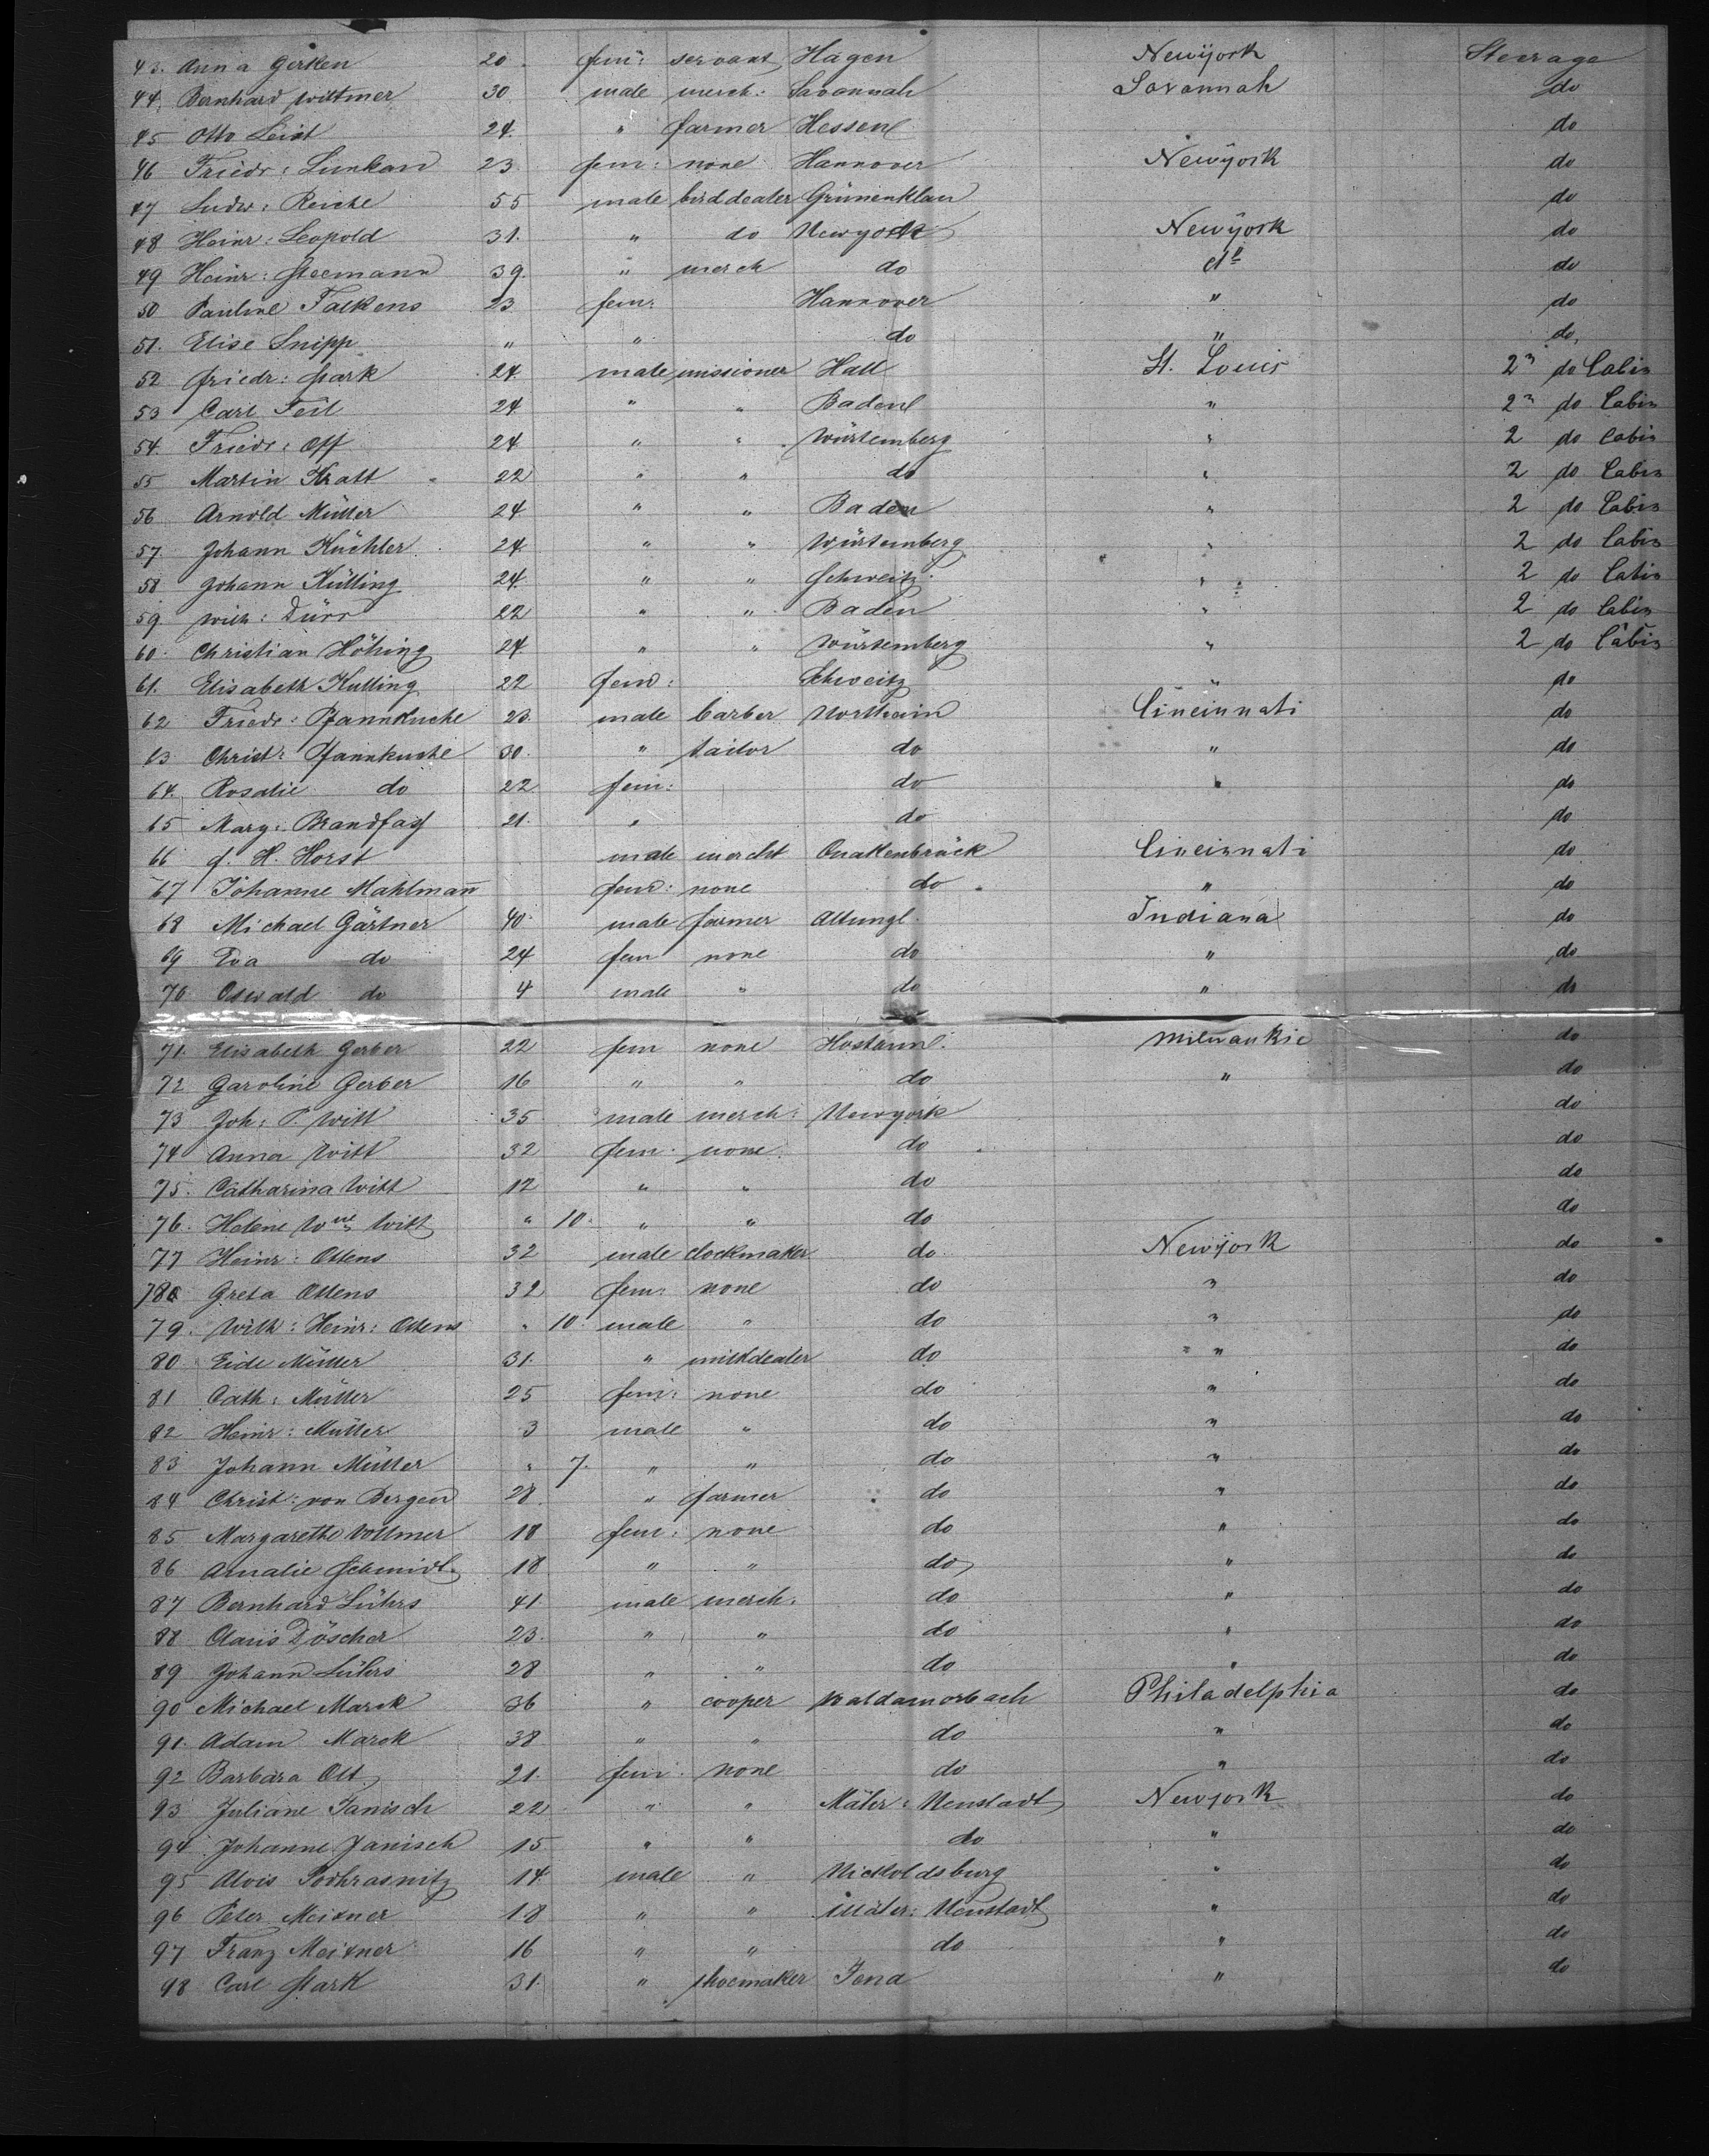 43. Anna Gerken 20. fem: servant Hagen Newÿork Steerage
44. Bernhard Wittmer 30 male merch: Savannah Savannah do
45 Otto Leist 24. " farmer Hessen do
46 Friedr: Lunkan 23. fem: none Hannover Newÿork do
47 Ludw: Reiche 55 male birddealer Grünenklan do
48 Heinr: Leopold 31. " do Newyork Newÿork do
49 Heinr: Steemann 39. " merch do do do
50 Pauline Falkens 23 fem: Hannover " do
51. Elise Snipp " " do " do,
52 Friedr: Stark 24. male missioner Hall St. Louis 2n do Cabin
53 Carl Feil 24 " " Baden " 2n do Cabin
54. Friedr: Off 24 " " Würtemberg " 2 do Cabin
55 Martin Kratt 22 " " do " 2 do Cabin
56 Arnold Müller 24. " " Baden " 2 do Cabin
57 Johann Küchler 24. " " Würtemberg " 2 do Cabin
58 Johann Kütling 24. " " Schweitz. " 2 do Cabin
59. Wilh: Dürr 22 " " Baden " 2 do Cabin
60. Christian Höhing 24. " " Würtemberg " 2 do Cabin
61. Elisabeth Kutling 22 fem: Schweitz " do
62 Friedr: Pfannkuche 23. male barber Northeim Cincinnati do
63 Christ: Pfannkuche 30. " tailor do " do
64. Rosalie do 22 fem: do " do
65 Marg: Brandfass 21. " do do
66 J. H. Horst male mercht Quakenbrück Cincinnati do
67 Johanne Mahlmañ fem: none do " do
68 Michael Gärtner 40. male farmer Altungl. Indiana do
69 Eva do 24 fem none do " do
70. Oswald do 4 male " do " do
71. Elisabeth Gerber 22 fem none Milwaukie do
72 Caroline Gerber 16 " " do " do
73 Joh: P. Witt 35 male merch: Newyork do
74 Anna Witt 32 fem: none do do
75. Catharina Witt 12 " " do do
76. Helene Wne Witt " 10. " " do do
77 Heinr: Ottens 32 male clockmaker do. Newÿork do
78 Greta Ottens 32 fem: none do " do
79. Wilh: Heinr: Ottens " 10. male " do " do
80 Eide Müller 31. " milkdealer do " do
81 Cath: Müller 25 fem: none do " do
82 Heinr: Müller 3 male " do " do
83 Johann Müller " 7. " " do " do
84 Christ: von Bergen 28. " farmer do " do
85. Margarethe Vollmer 18 fem: none do " do
86 Amalie Schmidt 18 " " do " do
87 Bernhard Lührs 41 male merch. do " do
88 Claus Döscher 23. " " do " do
89 Johann Lührs 28 " " do " do
90 Michael Marck 36 " cooper Waldamorbach Philadelphia do
91. Adam Marck 38 " " do " do
92 Barbara Ott 21. fem: none do " do
93 Juliane Janisch 22 " " Mähr: Neustadt Newyork do
94 Johanne Janisch 15 " " do " do
95 Alois Podhrasnitz 14. male " Nickoldsburg " do
96 Peter Meixner 18 " " Mähr: Neustadt " do
97 Franz Meixner 16 " " do " do
98 Carl Stark 31. " shoemaker Jena " do